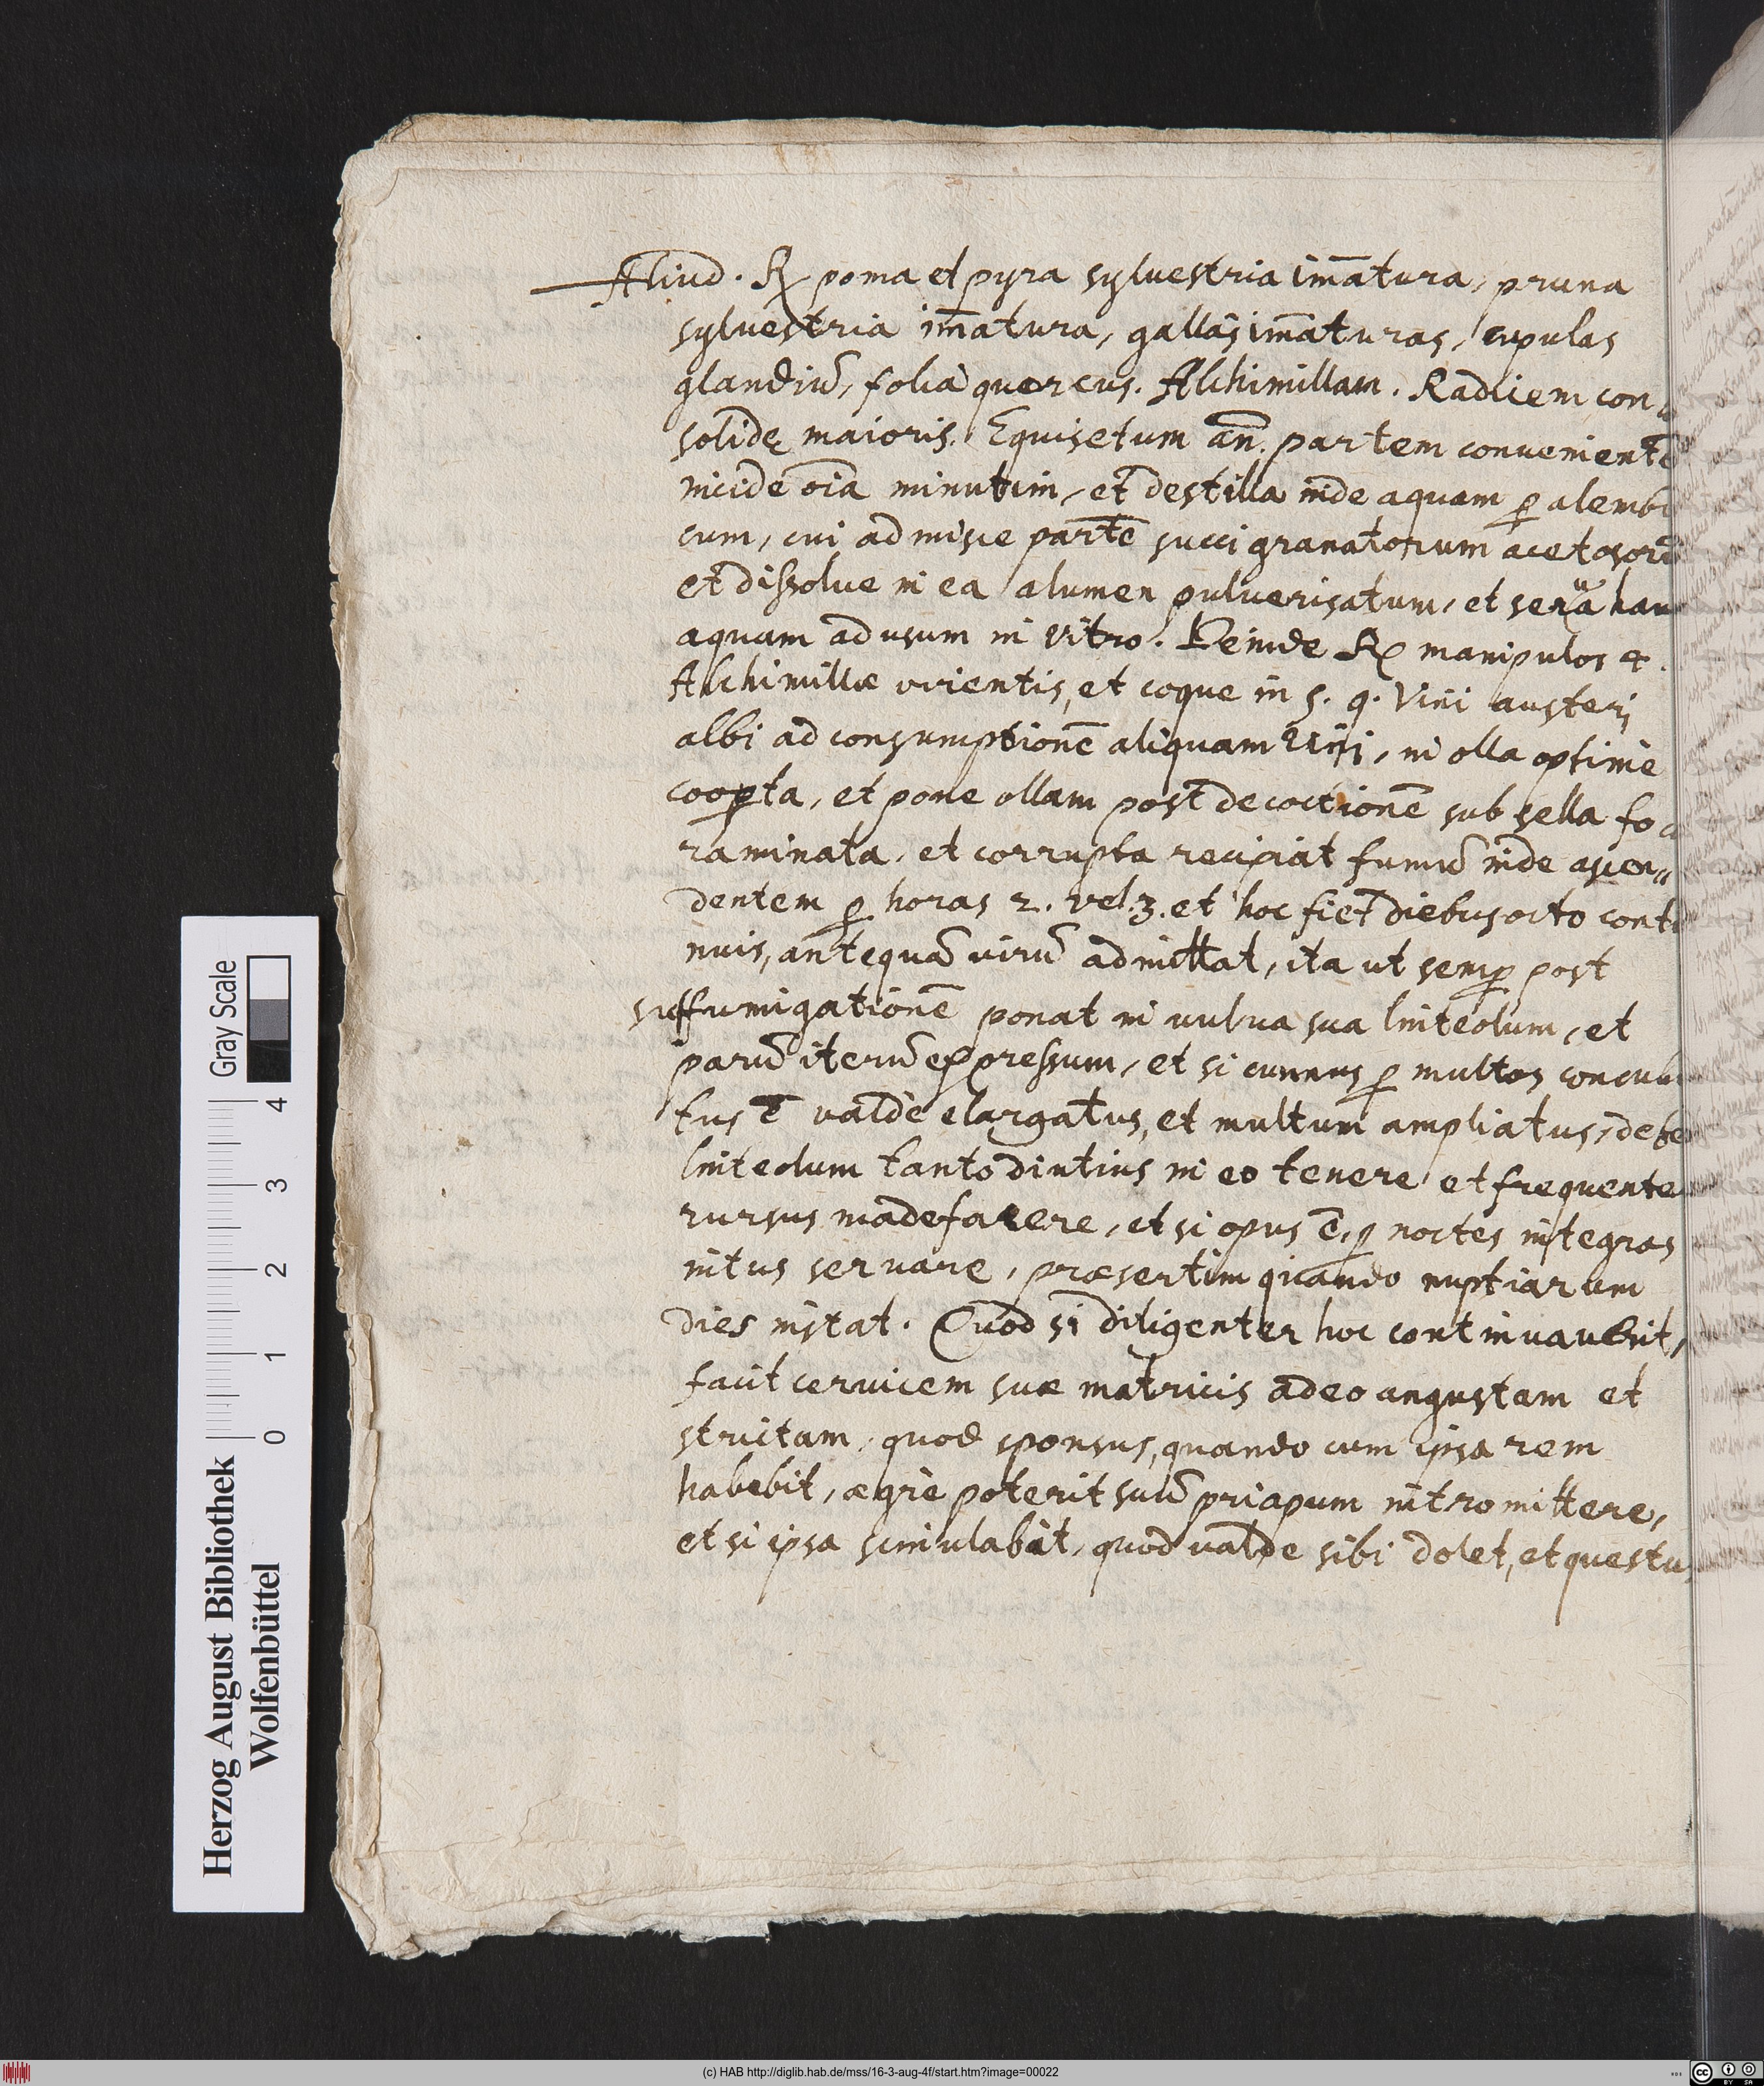 Aliud. ℞ poma et pyra sylvestria im̄atura, pruna
sylvestria im̄atura, gallas im̄aturas, cupulas
glandiū, folia quercus. Alchimillam. Radicem con
solidę maioris. Equisetum an̄. partem convenientē
incide oīa minutim, et destilla inde aquam ꝑ alembi
cum, cui admisce partē succi granatorum acetosorū
et dissolve in ea alumen pulverisatum, et serva han
aquam ad usum in vitro. Deinde ℞ manipulos 4.
Alchimillæ virentis, et coque in s. q. Vini austeri
albi ad consumptionē aliquam Vini, in olla optime
cooꝑta, et pone ollam post decoctionē sub sella fo
raminata, et corrupta recipiat fumū inde ascen„
dentem ꝑ horas 2. vel. 3. et hoc fiet diebus octo conti
nuis, antequā virū admittat, ita ut semꝑ post
suffumigationē ponat in vulva sua linteolum, et
parū iterū expressum, et si cunnus ꝑ multos concubi
tus ē valde elargatus, et multum ampliatus, debe
linteolum tanto diutius in eo tenere et frequente
rursus madefacere, et si opus ē, ꝑ noctes integras
intus servare, præsertim quando nuptiarum
dies instat. Quod si diligenter hoc continuaverit,
facit cervicem suæ matricis adeo angustam et
strictam, quod sponsus, quando cum ipsa rem
habebit, ægrè poterit suū priapum intromittere,
et si ipsa simulabit, quod valde sibi dolet, et questu
Herzog August Bibliothek
Wolfenbüttel
0 1 2 3 4
Gray Scale
(c) HAB http://diglib.hab.de/mss/16-3-aug-4f/start.htm?image=00022